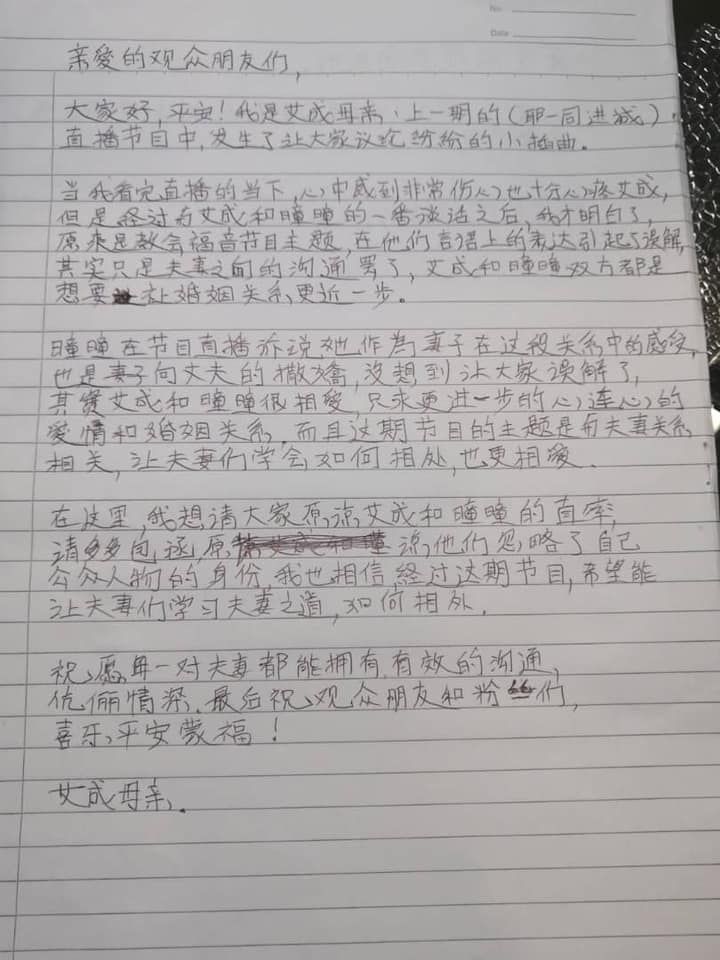 No.
Date
亲爱的观众朋友们,
大家好,平安!我是艾成母亲、上一期的(耶一同进城)
直播节目中,发生了让大家议论纷纷的小插曲。
当我看完直播的当下,心中感到非常伤心也十分心疼艾成,
但是经过与艾成和瞳瞳的一番谈话之后,我才明白了,
原来是教会福音节目主题,在他们言语上的表达引起了误解,
其实只是夫妻之间的沟通罢了,艾成和瞳瞳双方都是
想要让婚姻关系更近一步。
瞳瞳在节目直播诉说她作為妻子在这段关系中的感受,
也是妻子向丈夫的撒嬌,沒想到让大家误解了,
其實艾成和瞳瞳很相愛,只求更进一步的心连心的
愛情和婚姻关系,而且这期节目的主题是与夫妻关系
相关,让夫妻们学会如何相处,也更相愛.
在这里,我想请大家原谅艾成和瞳瞳的直率,
请多多包拯,原谅他们忽略了自己
公众人物的身份,我也相信经过这期节目,希望能
让夫妻们学习夫妻之道,如何相处.
祝愿每一对夫妻都能拥有有效的沟通,
伉俪情深.最后祝观众朋友和粉丝们,
喜乐、平安蒙福!
艾成母亲.